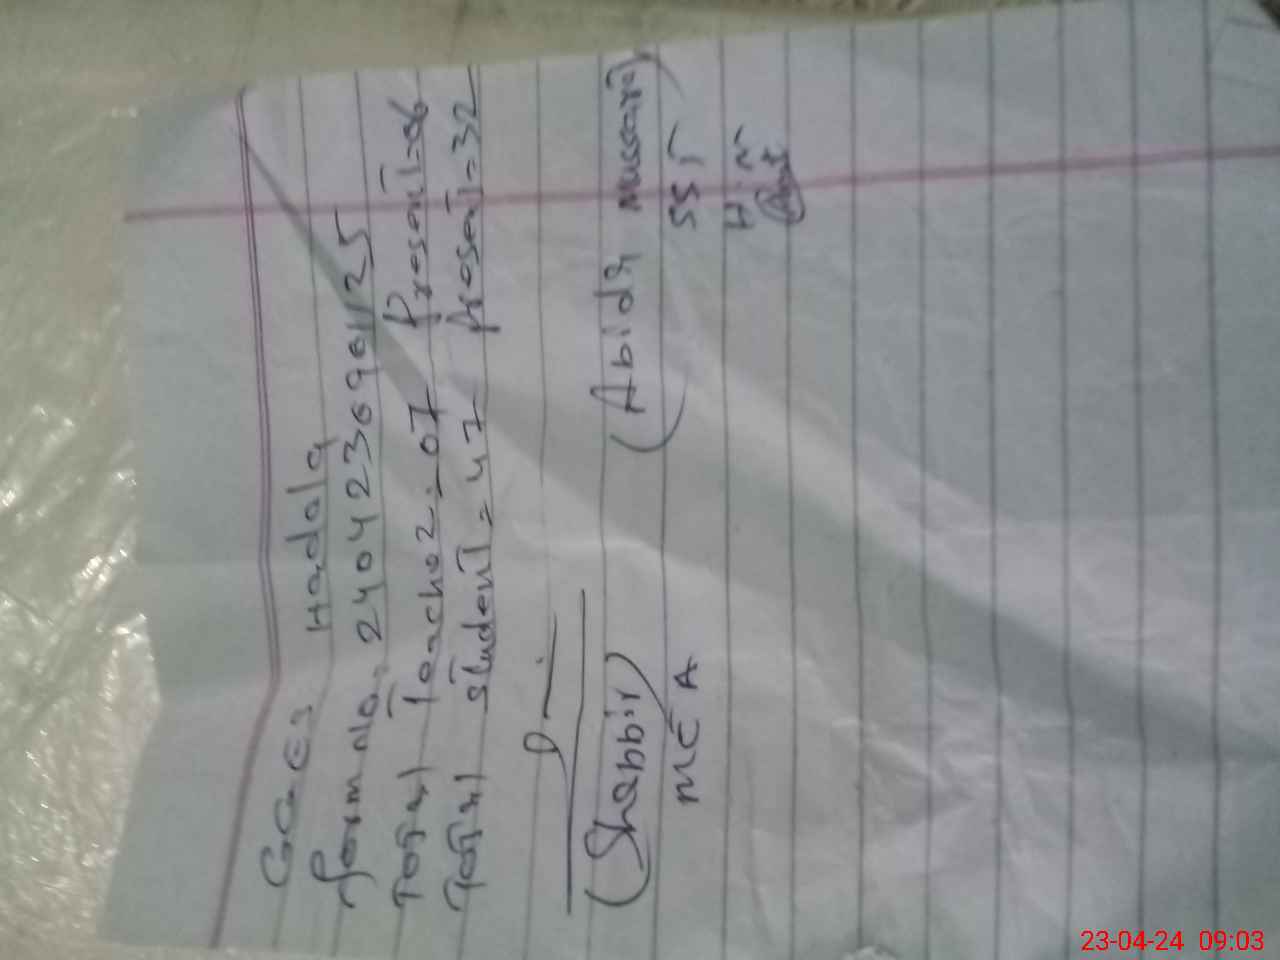 GGES Hadala
Form No. 240423690125
Total Teacher = 07 Present = 06
Total Student = 47 Present = 32
(Shabbir) (Abida
MEA SST
23-04-24 09:03